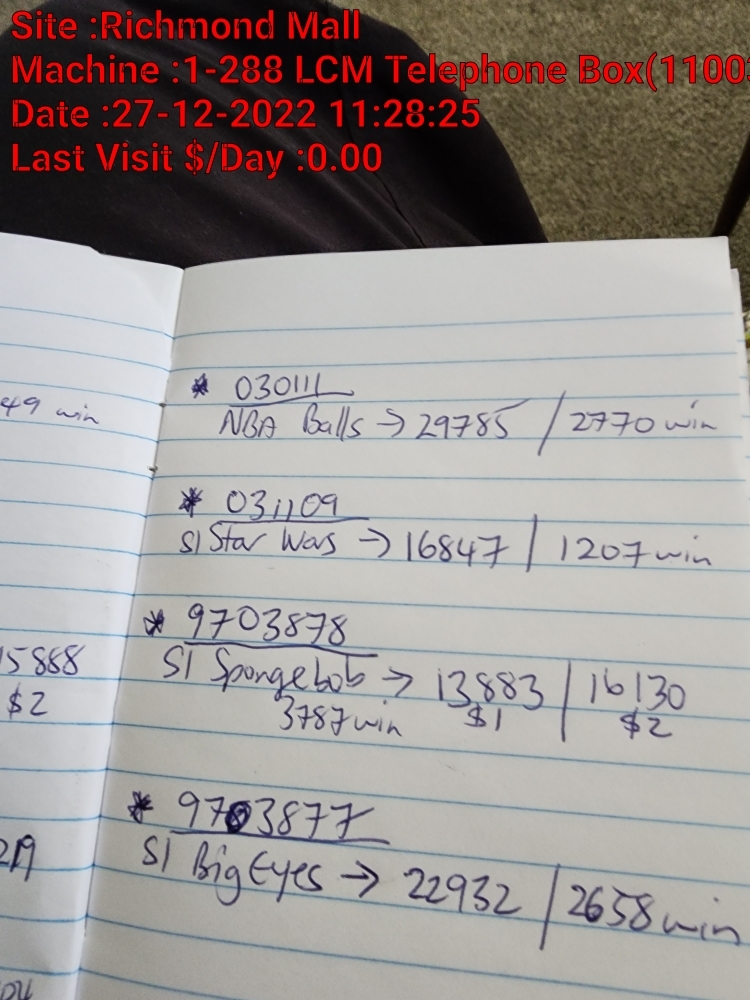 Site :Richmond Mall
Machine :1-288 LCM Telephone Box(1100
Date :27-12-2022 11:28:25
Last Visit $/Day :0.00
49 win
* 030111
NBA Balls → 29785 / 2770 win
* 031109
S1 Star Wars → 16847 | 1207 win
15888
$2
* 9703878
S1 Spongebob → 13883 | 16130
3787 win $1 $2
* 9703877
S1 Big Eyes → 22932 | 2658 win